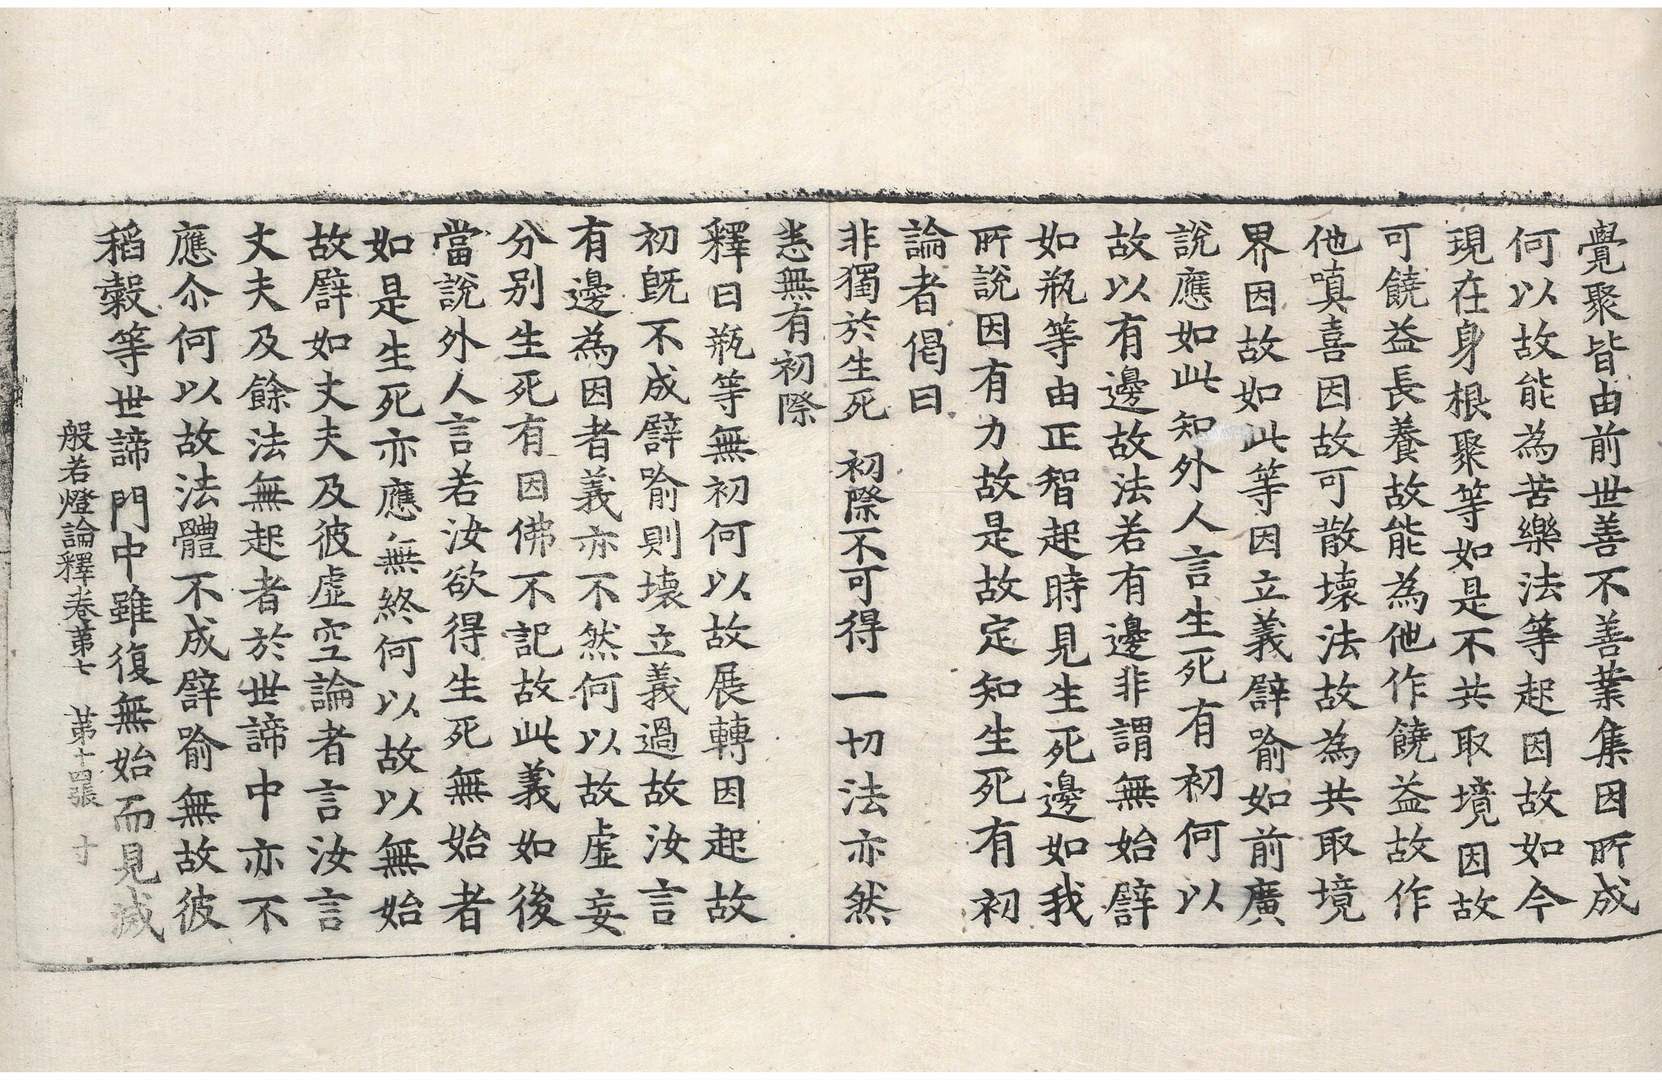 覺聚皆由前世善不善業集因所成
何以故能為苦樂法等起因故如今
現在身根聚等如是不共取境因故
可饒益長養故能為他作饒益故作
他嗔喜因故可散壞法故為共取境
界因故如此等因立義譬喻如前廣
說應如此知外人言生死有初何以
故以有邊故法若有邊非謂無始譬
如瓶等由正智起時見生死邊如我
所說因有力故是故定知生死有初
論者偈曰
非獨於生死 初際不可得 一切法亦然
悉無有初際
釋曰瓶等無初何以故展轉因起故
初既不成譬喻則壞立義過故汝言
有邊為因者義亦不然何以故虛妄
分別生死有因佛不記故此義如後
當說外人言若汝欲得生死無始者
如是生死亦應無終何以故以無始
故譬如丈夫及彼虛空論者言汝言
丈夫及餘法無起者於世諦中亦不
應尒何以故法體不成譬喻無故彼
稻穀等世諦門中雖復無始而見滅
般若燈論釋卷第七 第十四張 寸